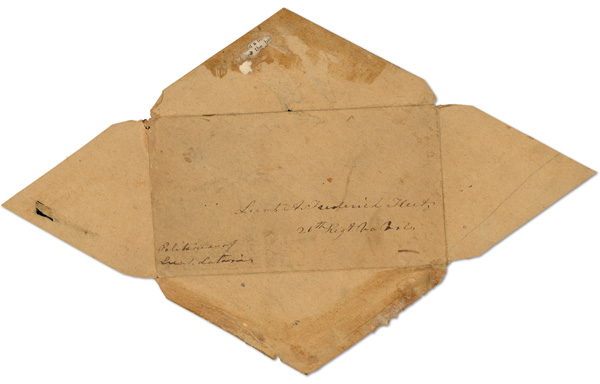 Lieut. A. Frederick Fleet,
26th Regt Va Vols.
Politeness of
Lieut.